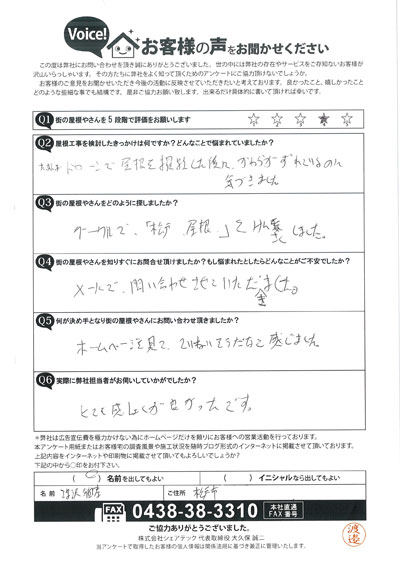 Voice!
お客様の声をお聞かせください
この度は弊社にお問い合わせを頂き誠にありがとうございました。世の中には弊社の存在やサービスをご存知ないお客様が
沢山いらっしゃいます。その方たちに弊社をよく知って頂くためのアンケートにご協力頂けないでしょうか。
お客様のご意見をお聞かせいただき今後の活動に反映させていただきたいと考えております。良かったこと、嬉しかったこと
どのような些細な事でも結構です。是非ご協力お願い致します。出来るだけ具体的に書いて頂ければ幸いです。
Q1 街の屋根やさんを5段階で評価をお願いします ☆ ☆ ☆ ★ ☆
Q2 屋根工事を検討したきっかけは何ですか?どんなことで悩まれていましたか?
ドローンで屋根を撮影した後に、かわらがずれているのに
気づきました
Q3 街の屋根やさんをどのように探しましたか?
グーグルで、「松戸 屋根」とけんさくしました。
Q4 街の屋根やさんを知りすぐにお問合せ頂けましたか?もし悩まれたとしたらどんなことがご不安でしたか?
メールで、問い合わせさせていただきました。
Q5 何が決め手となり街の屋根やさんにお問い合わせ頂きましたか?
ホームページを見て、ていねいそうだなと感じました。
Q6 実際に弊社担当者がお伺いしていかがでしたか?
とても感じが良かったです。
※弊社は広告宣伝費を極力かけない為にホームページだけを頼りにお客様への営業活動を行っております。
本アンケート用紙またはお客様宅の調査風景や施工状況を随時ブログ形式のインターネットに掲載させて頂いております。
上記内容をインターネットや印刷物に掲載させて頂いてもよろしいでしょうか?
下記の中から○印をお付け下さい。
(○)名前を出してもよい ( )イニシャルなら出してもよい
名前 ご住所 松戸市
FAX 0438-38-3310 本社直通
FAX番号
ご協力ありがとうございました。
株式会社シェアテック 代表取締役 大久保 誠二
当アンケートで取得したお客様の個人情報は関係法規に基づき厳正に管理いたします。
渡邉